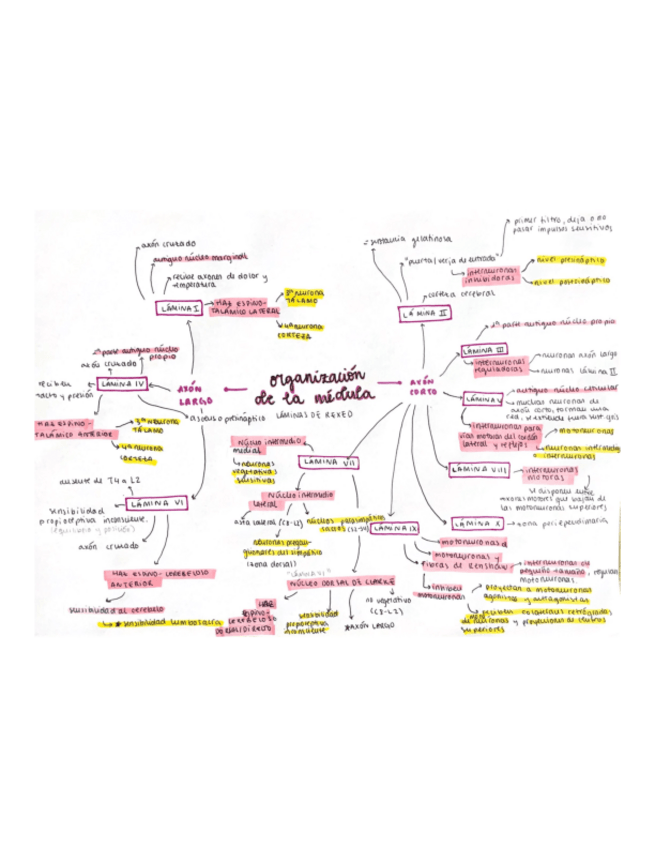 axón cruzado
antiguo núcleo marginal
recibe axones de dolor y
temperatura
LÁMINA I
HAZ ESPINO-
TALÁMICO LATERAL
3ª neurona
TÁLAMO
4ª neurona
CORTEZA
2ª parte antiguo núcleo
propio
axón cruzado
recibe
tacto y presión
LÁMINA IV
HAZ ESPINO-
TALÁMICO ANTERIOR
3ª neurona
TÁLAMO
4ª neurona
CORTEZA
AXÓN
LARGO
organización
de la médula
LÁMINAS DE REXED
AXÓN
CORTO
ausente de T4 a L2
LÁMINA VI
sensibilidad
propioceptiva inconsciente.
axón cruzado
HAZ ESPINO-CEREBELOSO
ANTERIOR
sensibilidad al cerebelo
sensibilidad lumbosacra
sustancia gelatinosa
"puerta/verja de entrada"
primer filtro, deja o no
pasar impulsos sensitivos
interneuronas
inhibidoras
nivel presináptico
nivel postsináptico
corteza cerebral
LÁMINA II
1ª parte antiguo núcleo propio
LÁMINA III
interneuronas
reguladoras
neuronas axón largo
neuronas lámina II
LÁMINA V
antiguo núcleo
muchas neuronas de
axón corto, forman una
red, se extiende hacia sust. gris
interneuronas para
vías motoras del cordón
lateral y reflejos
motoneuronas
o interneuronas
LÁMINA VIII
interneuronas
motoras
se disponen sobre
axones motores que bajan de
las motoneuronas superiores
LÁMINA X
zona periependimaria
Núcleo intermedio
medial
neuronas
vegetativas
sensitivas
LÁMINA VII
Núcleo intermedio
lateral
asta lateral (C8-L2)
núcleos parasimpáticos
sacros (S2-S4)
neuronas pregan-
glionares del simpático
(zona dorsal)
NÚCLEO DORSAL DE CLARKE
HAZ
ESPINO-
CEREBELOSO
DORSAL/DIRECTO
sensibilidad
propioceptiva
inconsciente
AXÓN LARGO
no vegetativo
(C8-L2)
LÁMINA IX
motoneuronas α
motoneuronas γ
fibras de Renshaw
interneuronas de
pequeño tamaño, regulan
motoneuronas.
inhiben
motoneuronas
proyectan a motoneuronas
agonistas y antagonistas
reciben colaterales retrógradas
de neuronas y proyecciones de centros
superiores